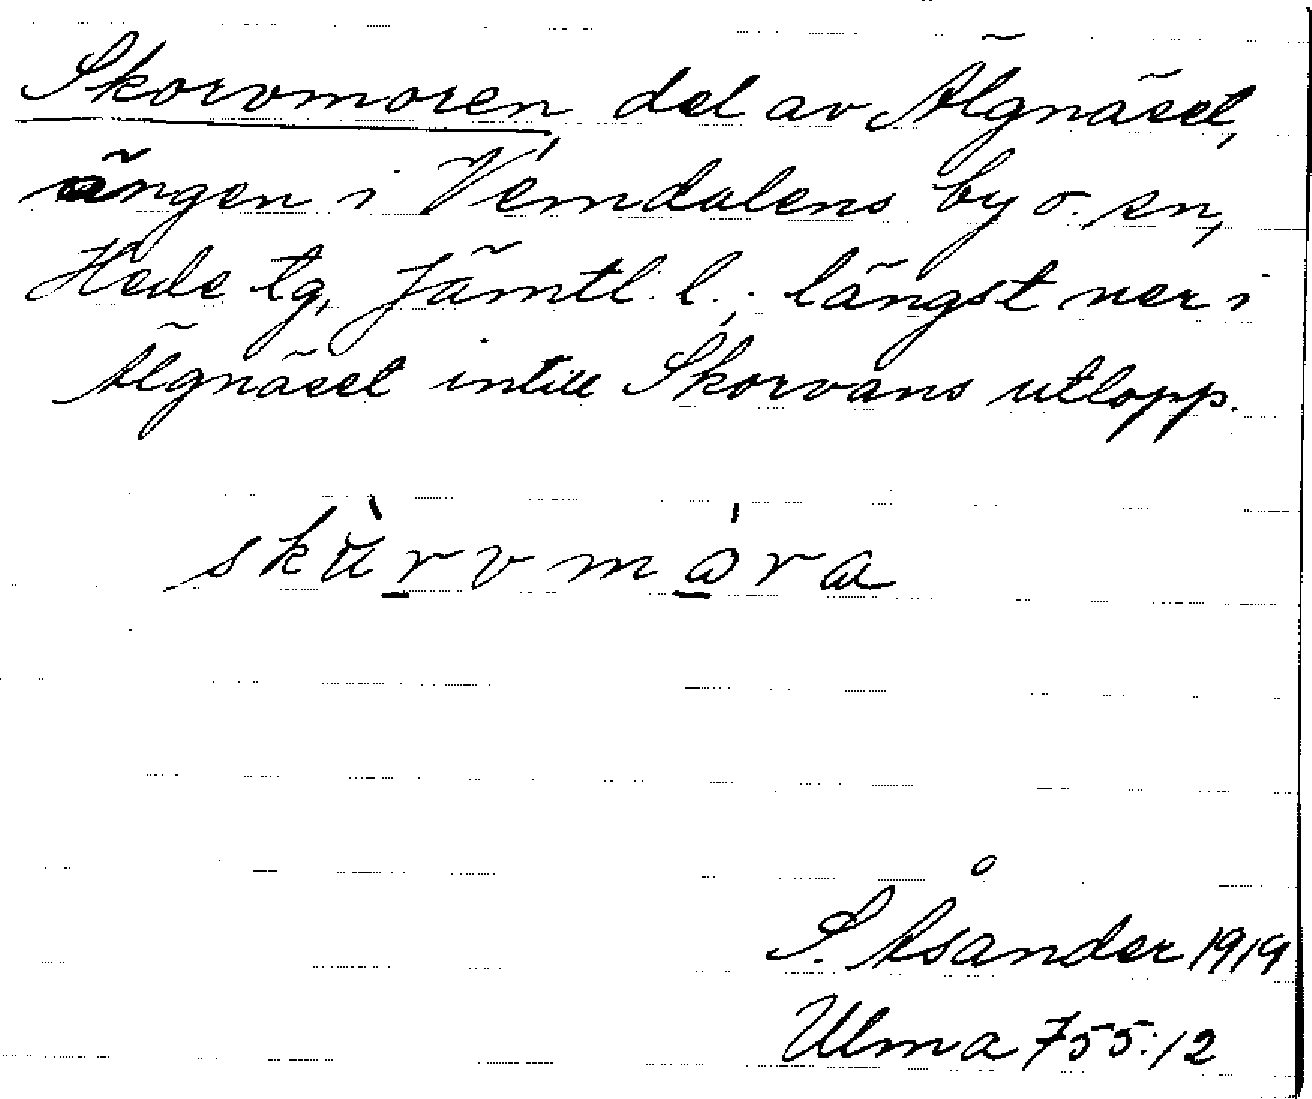 Skorvmoren, del av Älgnäset,
ängen i Vemdalens by o. sn,
Hede tg, Jämtl. l.; längst ner i
Älgnäset intill Skorvans utlopp.
skùrvmóra
S. Åsander 1919
Ulma 755:12